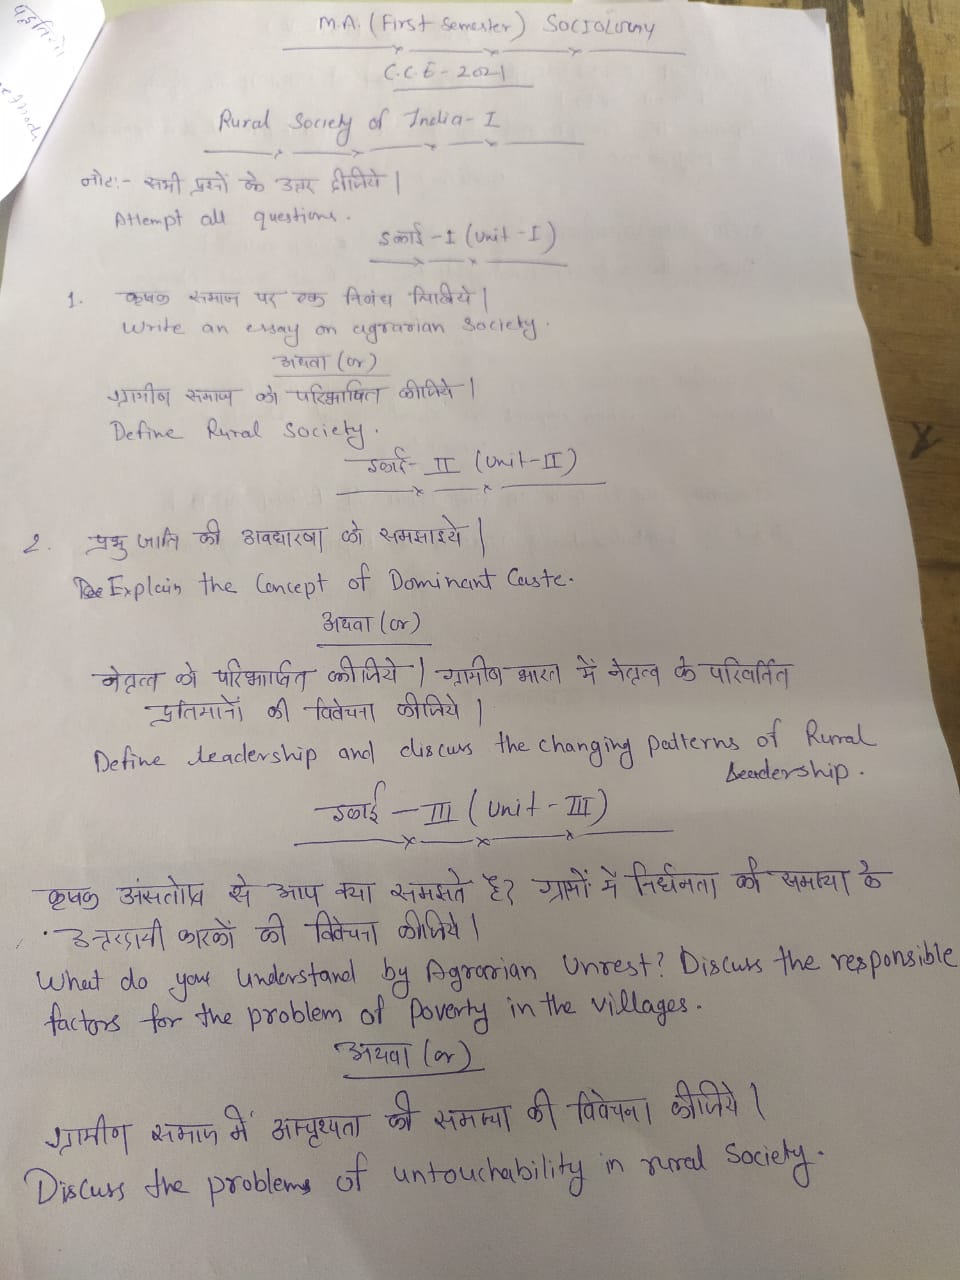 M.A. (First Semester) SOCIOLOGY
C.C.E - 2021
Rural Society of India - I
नोट:- सभी प्रश्नों के उत्तर दीजिये |
Attempt all questions.
इकाई - I (Unit - I)
1. कृषक समाज पर एक निबंध लिखिये |
Write an essay on agrarian society.
अथवा (or)
ग्रामीण समाज को परिभाषित कीजिये |
Define Rural Society.
इकाई - II (Unit-II)
2. प्रभु जाति की अवधारणा को समझाइये |
Explain the Concept of Dominant Caste.
अथवा (or)
नेतृत्व को परिभाषित कीजिये | ग्रामीण भारत में नेतृत्व के परिवर्तित
प्रतिमानों की विवेचना कीजिये |
Define leadership and discuss the changing patterns of Rural
Leadership.
इकाई - III (Unit - III)
कृषक अंसतोष से आप क्या समझते है? ग्रामों में निर्धनता की समस्या के
उत्तरदायी कारकों की विवेचना कीजिये |
What do you Understand by Agrarian Unrest? Discuss the responsible
factors for the problem of Poverty in the villages.
अथवा (or)
ग्रामीण समाज में अस्पृश्यता की समस्या की विवेचना कीजिये |
Discuss the problems of untouchability in rural Society.